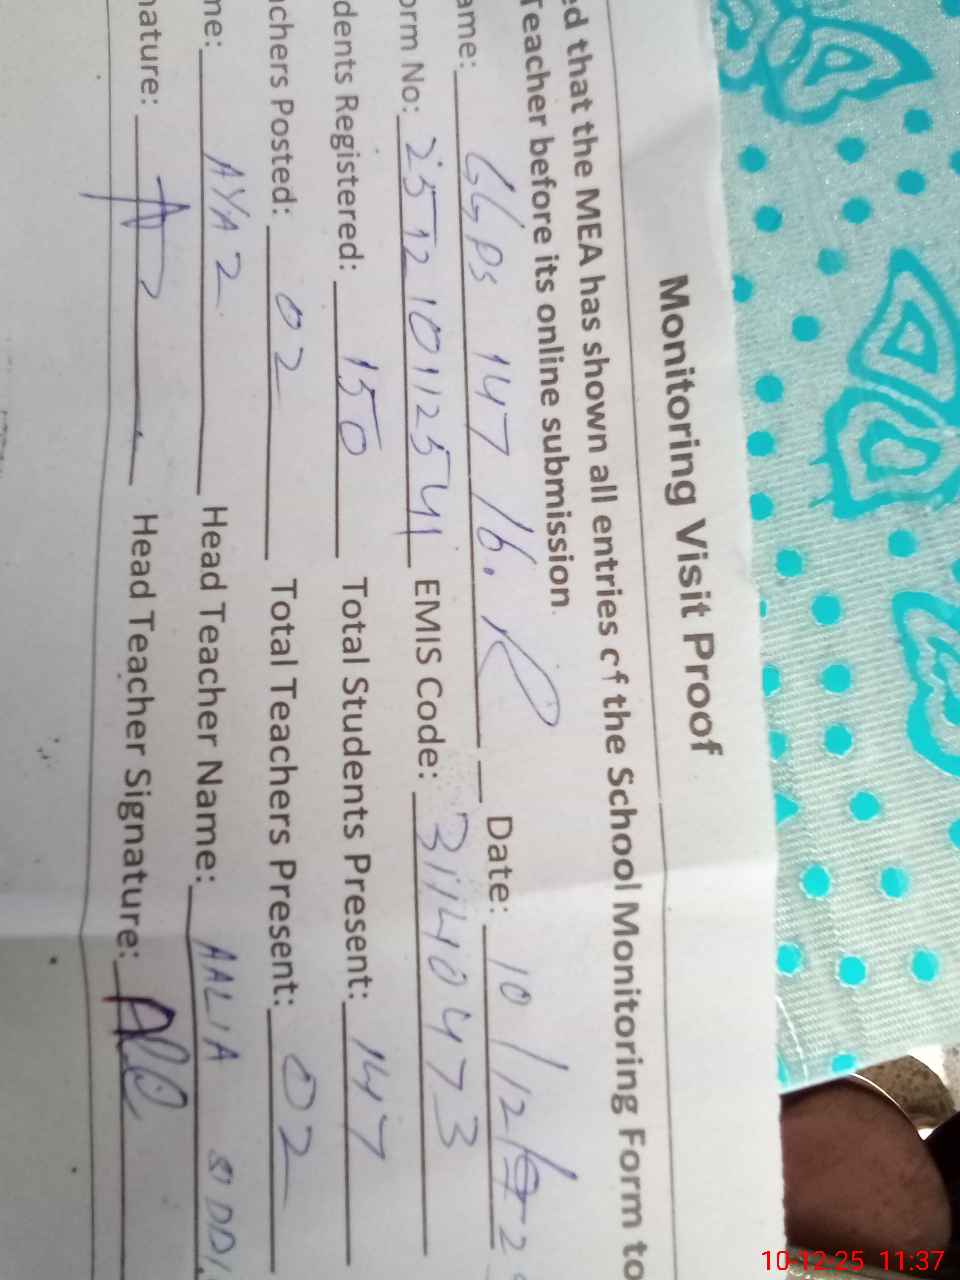 Monitoring Visit Proof
ed that the MEA has shown all entries of the School Monitoring Form to
Teacher before its online submission.
ame: GGPS 147 16.R Date: 10/12/
orm No: 25121011 2541 EMIS Code: 31140473
dents Registered: 150 Total Students Present: 147
achers Posted: 02 Total Teachers Present: 02
me: AYAZ Head Teacher Name: AALIA SIDDI
nature: Head Teacher Signature:
10-12-25 11:37